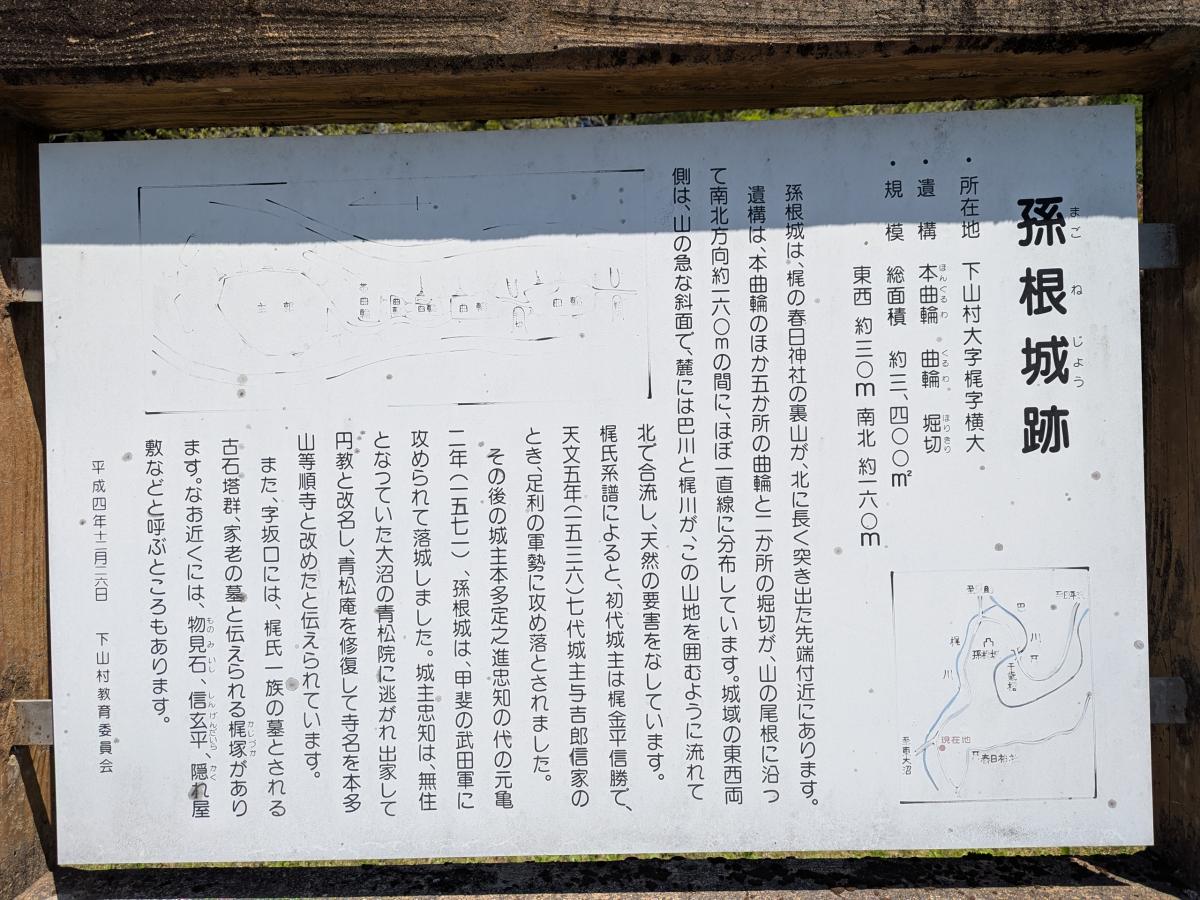 孫根城跡
まごねじょう
・所在地 下山村大字梶字横大
・遺構 本曲輪 曲輪 堀切
ほんぐるわ くるわ ほりきり
・規模 総面積 約三、四〇〇㎡
東西 約三〇m 南北 約一六〇m
孫根城は、梶の春日神社の裏山が、北に長く突き出た先端付近にあります。
遺構は、本曲輪のほか五か所の曲輪と二か所の堀切が、山の尾根に沿っ
て南北方向約一六〇mの間に、ほぼ一直線に分布しています。城域の東西両
側は、山の急な斜面で、麓には巴川と梶川が、この山地を囲むように流れて
北で合流し、天然の要害をなしています。
梶氏系譜によると、初代城主は梶金平信勝で、
天文五年(一五三六)七代城主与吉郎信家の
とき、足利の軍勢に攻め落とされました。
その後の城主本多定之進忠知の代の元亀
二年(一五七一)、孫根城は、甲斐の武田軍に
攻められて落城しました。城主忠知は、無住
となつていた大沼の青松院に逃がれ出家して
円教と改名し、青松庵を修復して寺名を本多
山等順寺と改めたと伝えられています。
また、字坂口には、梶氏一族の墓とされる
古石塔群、家老の墓と伝えられる梶塚があり
かじづか
ます。なお近くには、物見石、信玄平、隠れ屋
ものみいし しんげんだいら かく
敷などと呼ぶところもあります。
平成四年十二月二六日 下山村教育委員会
主郭
曲輪
曲輪
曲輪
巴
川
梶
川
凸
孫根城
現在地
至東大沼
春日神社